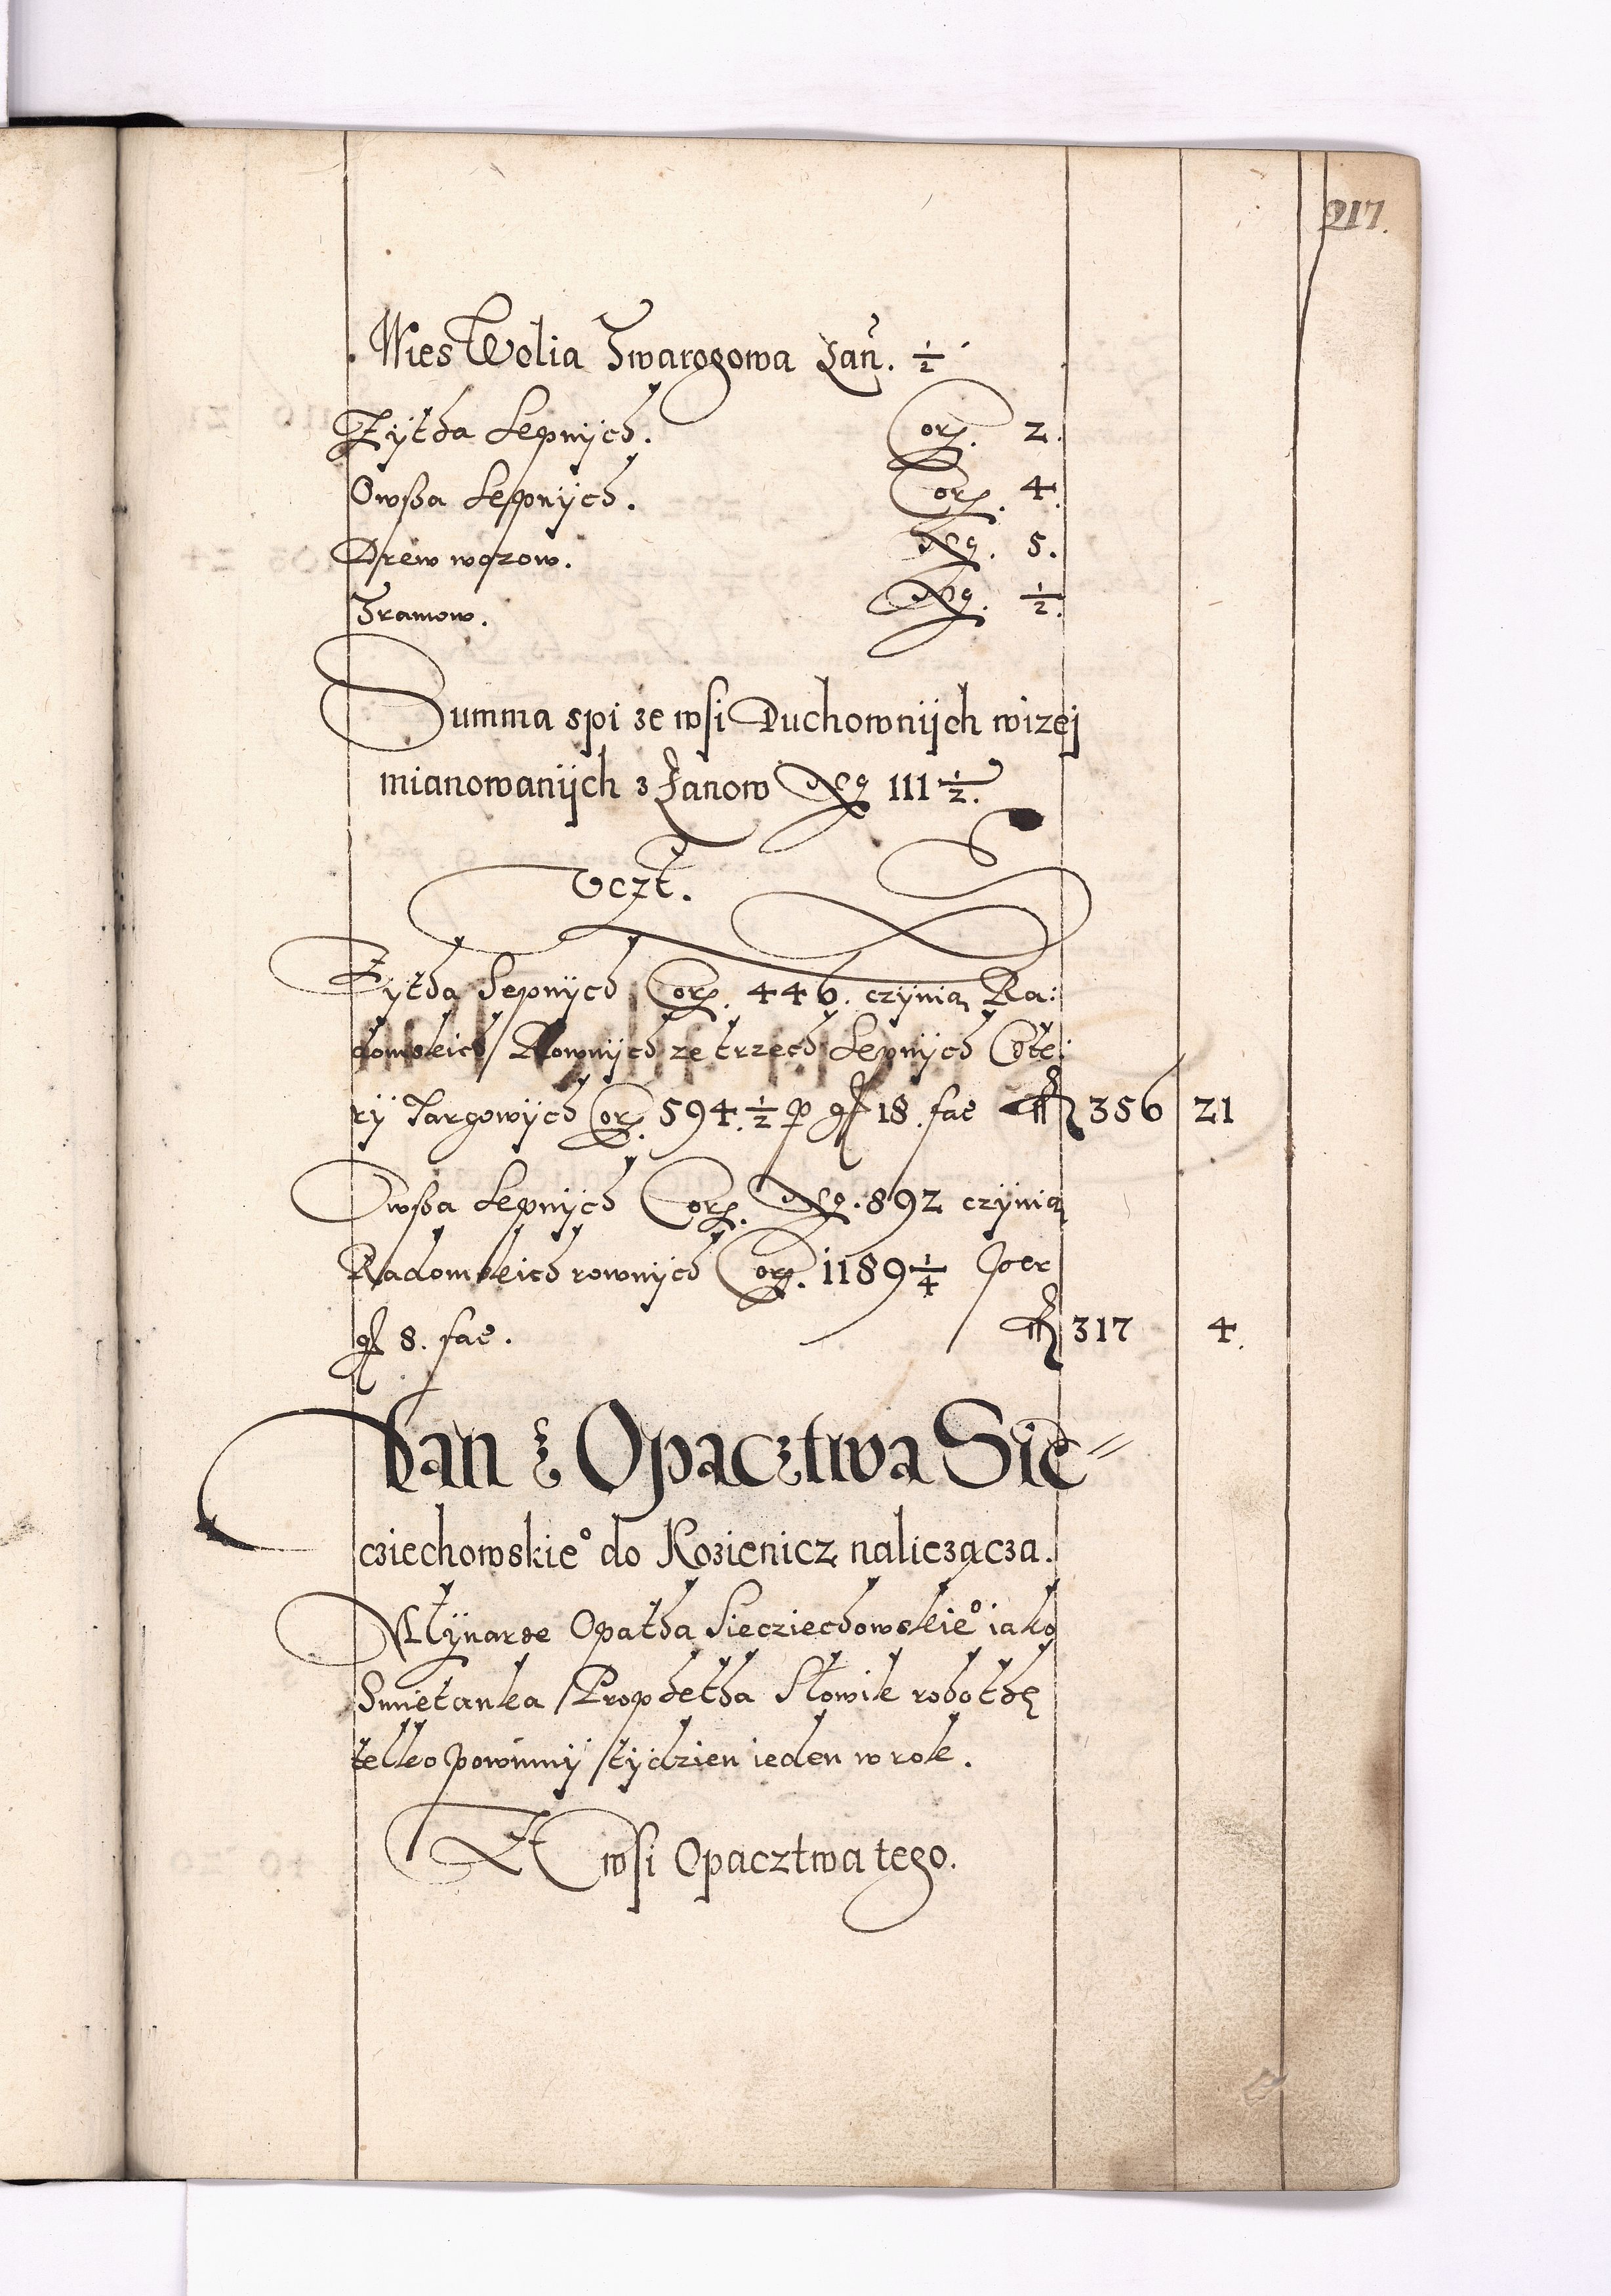 217.
Wies Wolia Twarogowa Łan. ½
Zÿtha Lepnÿch. Corz. 2.
Owßa Lepnÿch. Corz. 4.
Drew wozow. No. 5.
Tramow. No. ½.
Summa spi ze wsi Duchownÿch wizej
mianowanÿch z Łanow No 111 ½.
Vczt.
Zÿtha Lepnÿch Corz. 446. czÿnią Ra:
domskich Rownÿch ze trzech Lepnÿch Czte:
rÿ Targowÿch Corz. 594. ½ p gr 18. fac fl 356 21
Owßa Lepnÿch Corz. No. 892 czÿnią
Radomskich rownÿch Corz. 1189 ¼ per
gr 8. fac. fl 317 4.
Dan z Opacztwa Sie=
cziechowskieº do Kozienicz naliezącza.
Młÿnarze Opatha Siecziechowskieº iako
Smietanka Prophetha Słowik robothę
telko powinnÿ tÿdzien ieden w rok.
Ze wsi Opacztwa tego.